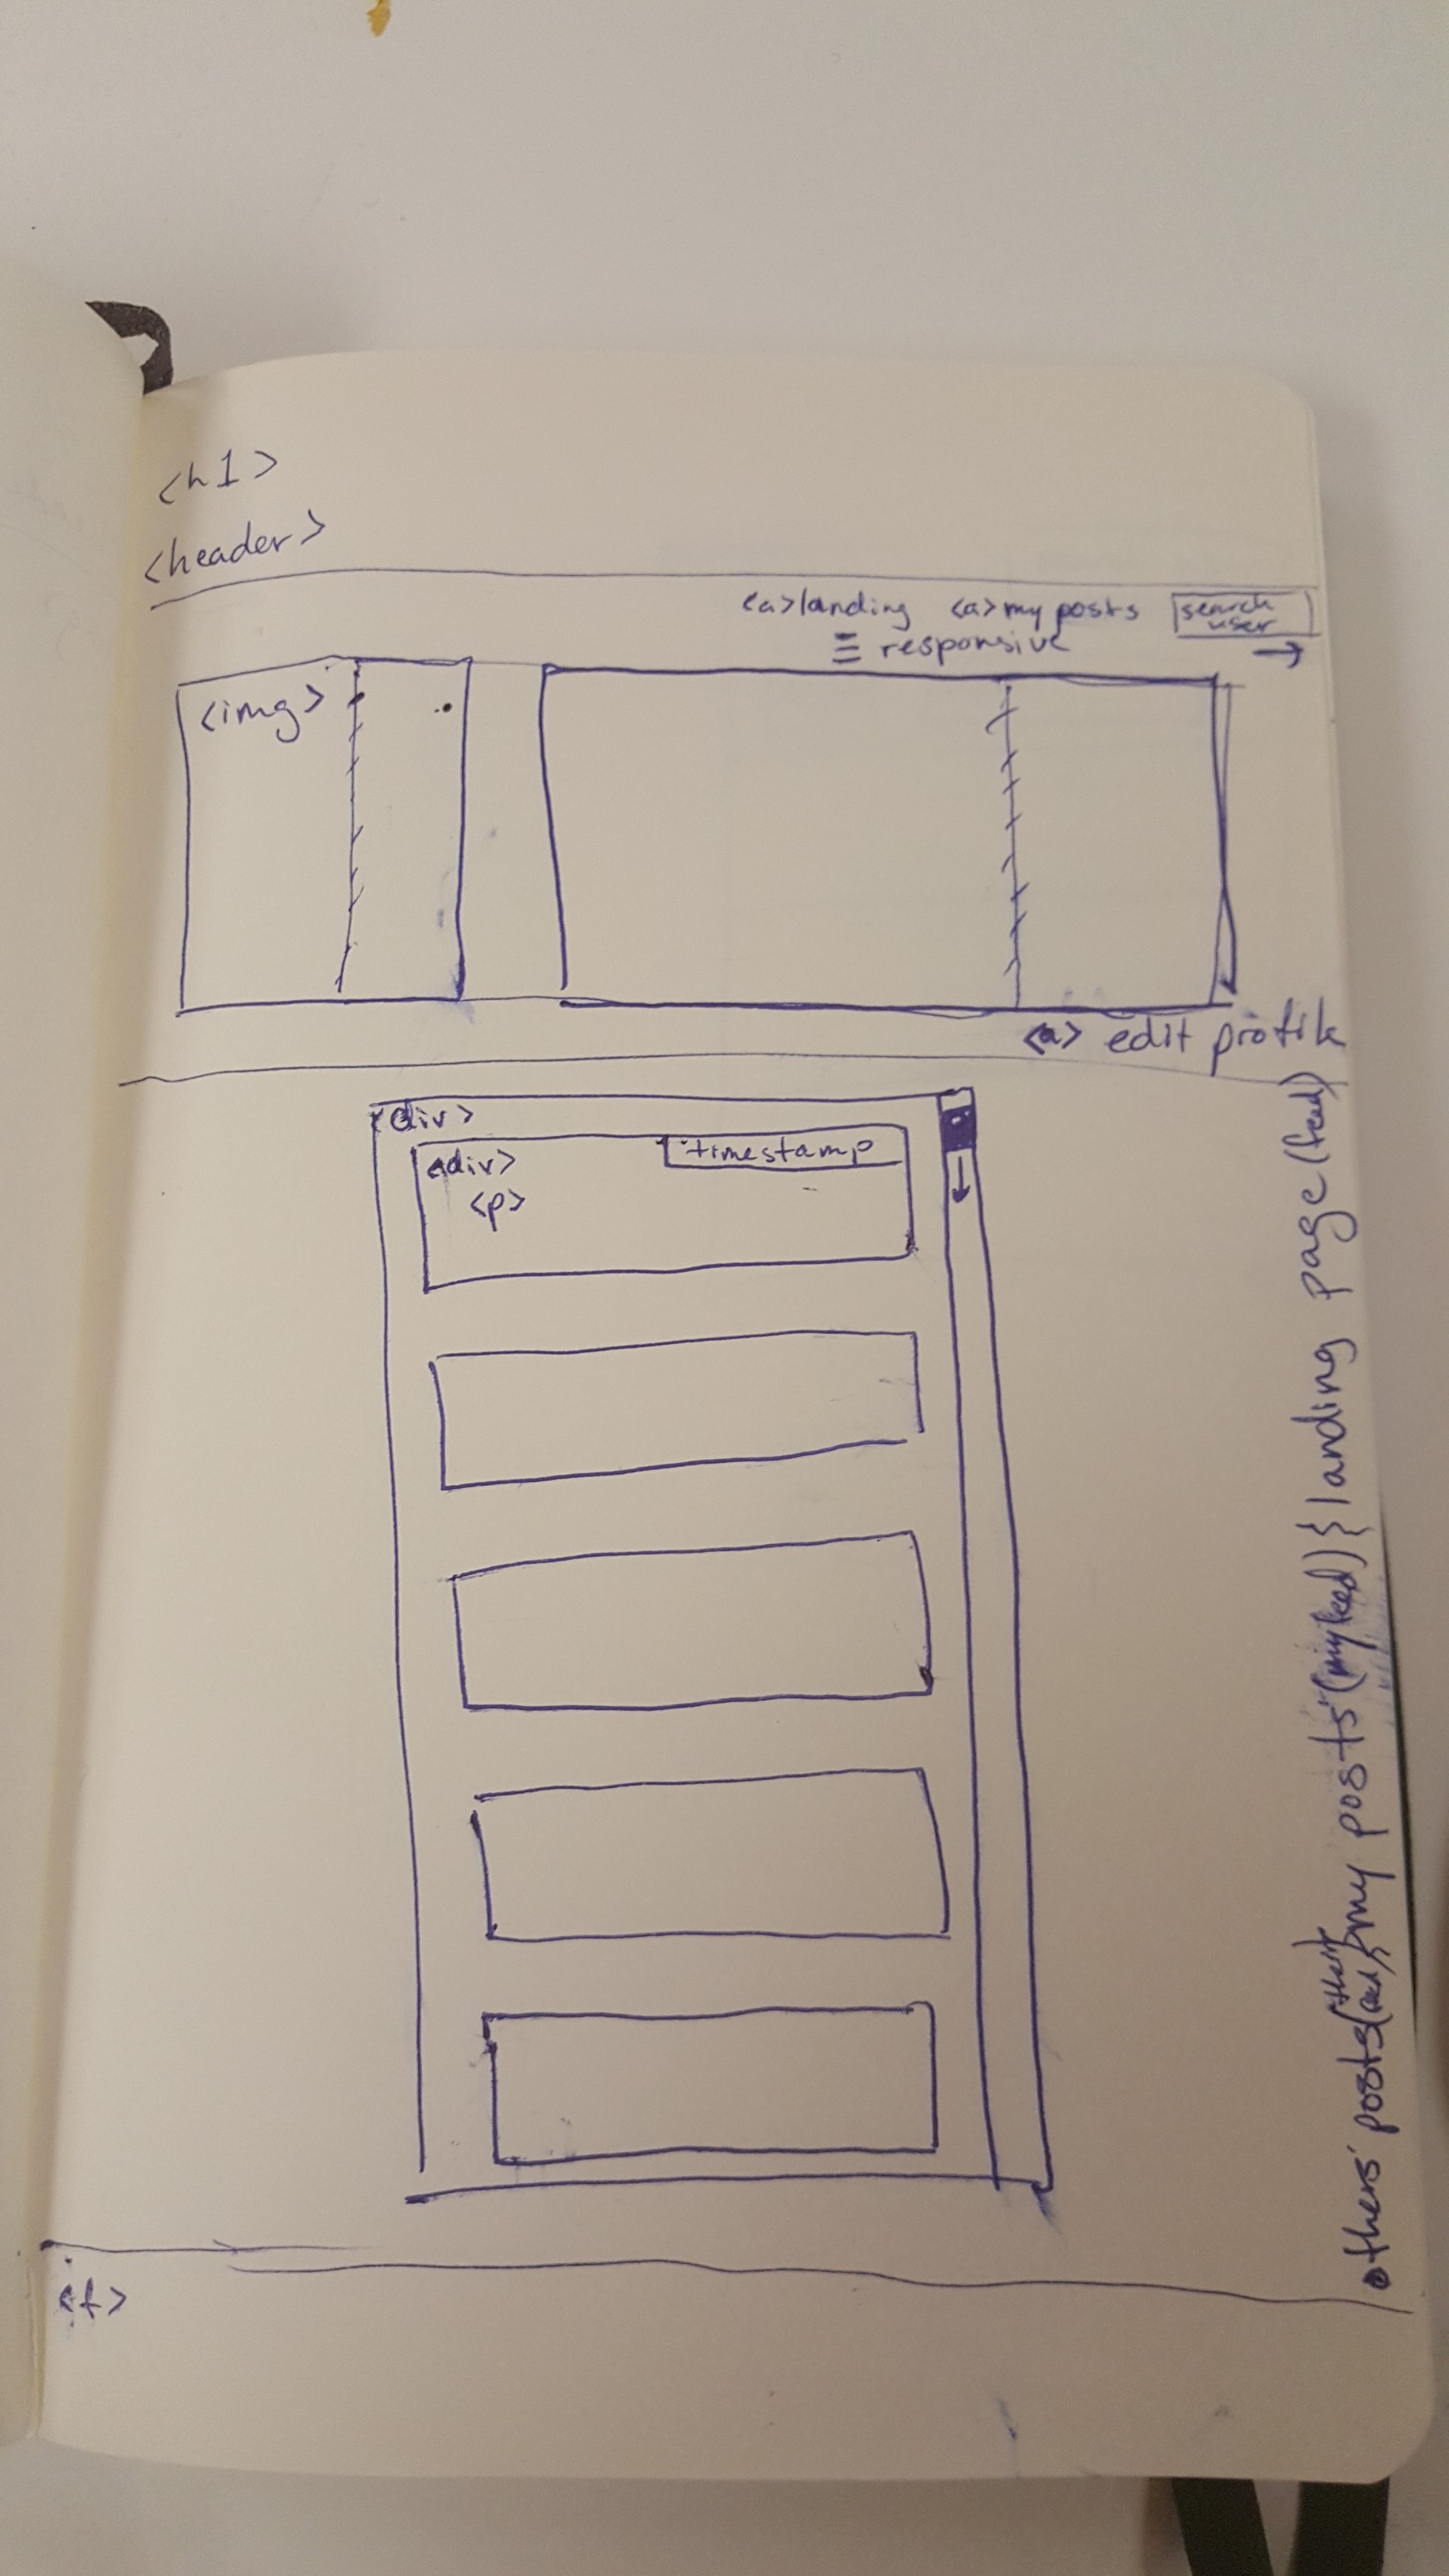 <h1>
<header>
<a>landing <a>my posts search
user
≡ responsive
→
<img>
<a> edit profile
<div>
<div> timestamp
<p>
↓
<f>
others' posts( their my posts (my feed) } landing page (feed)